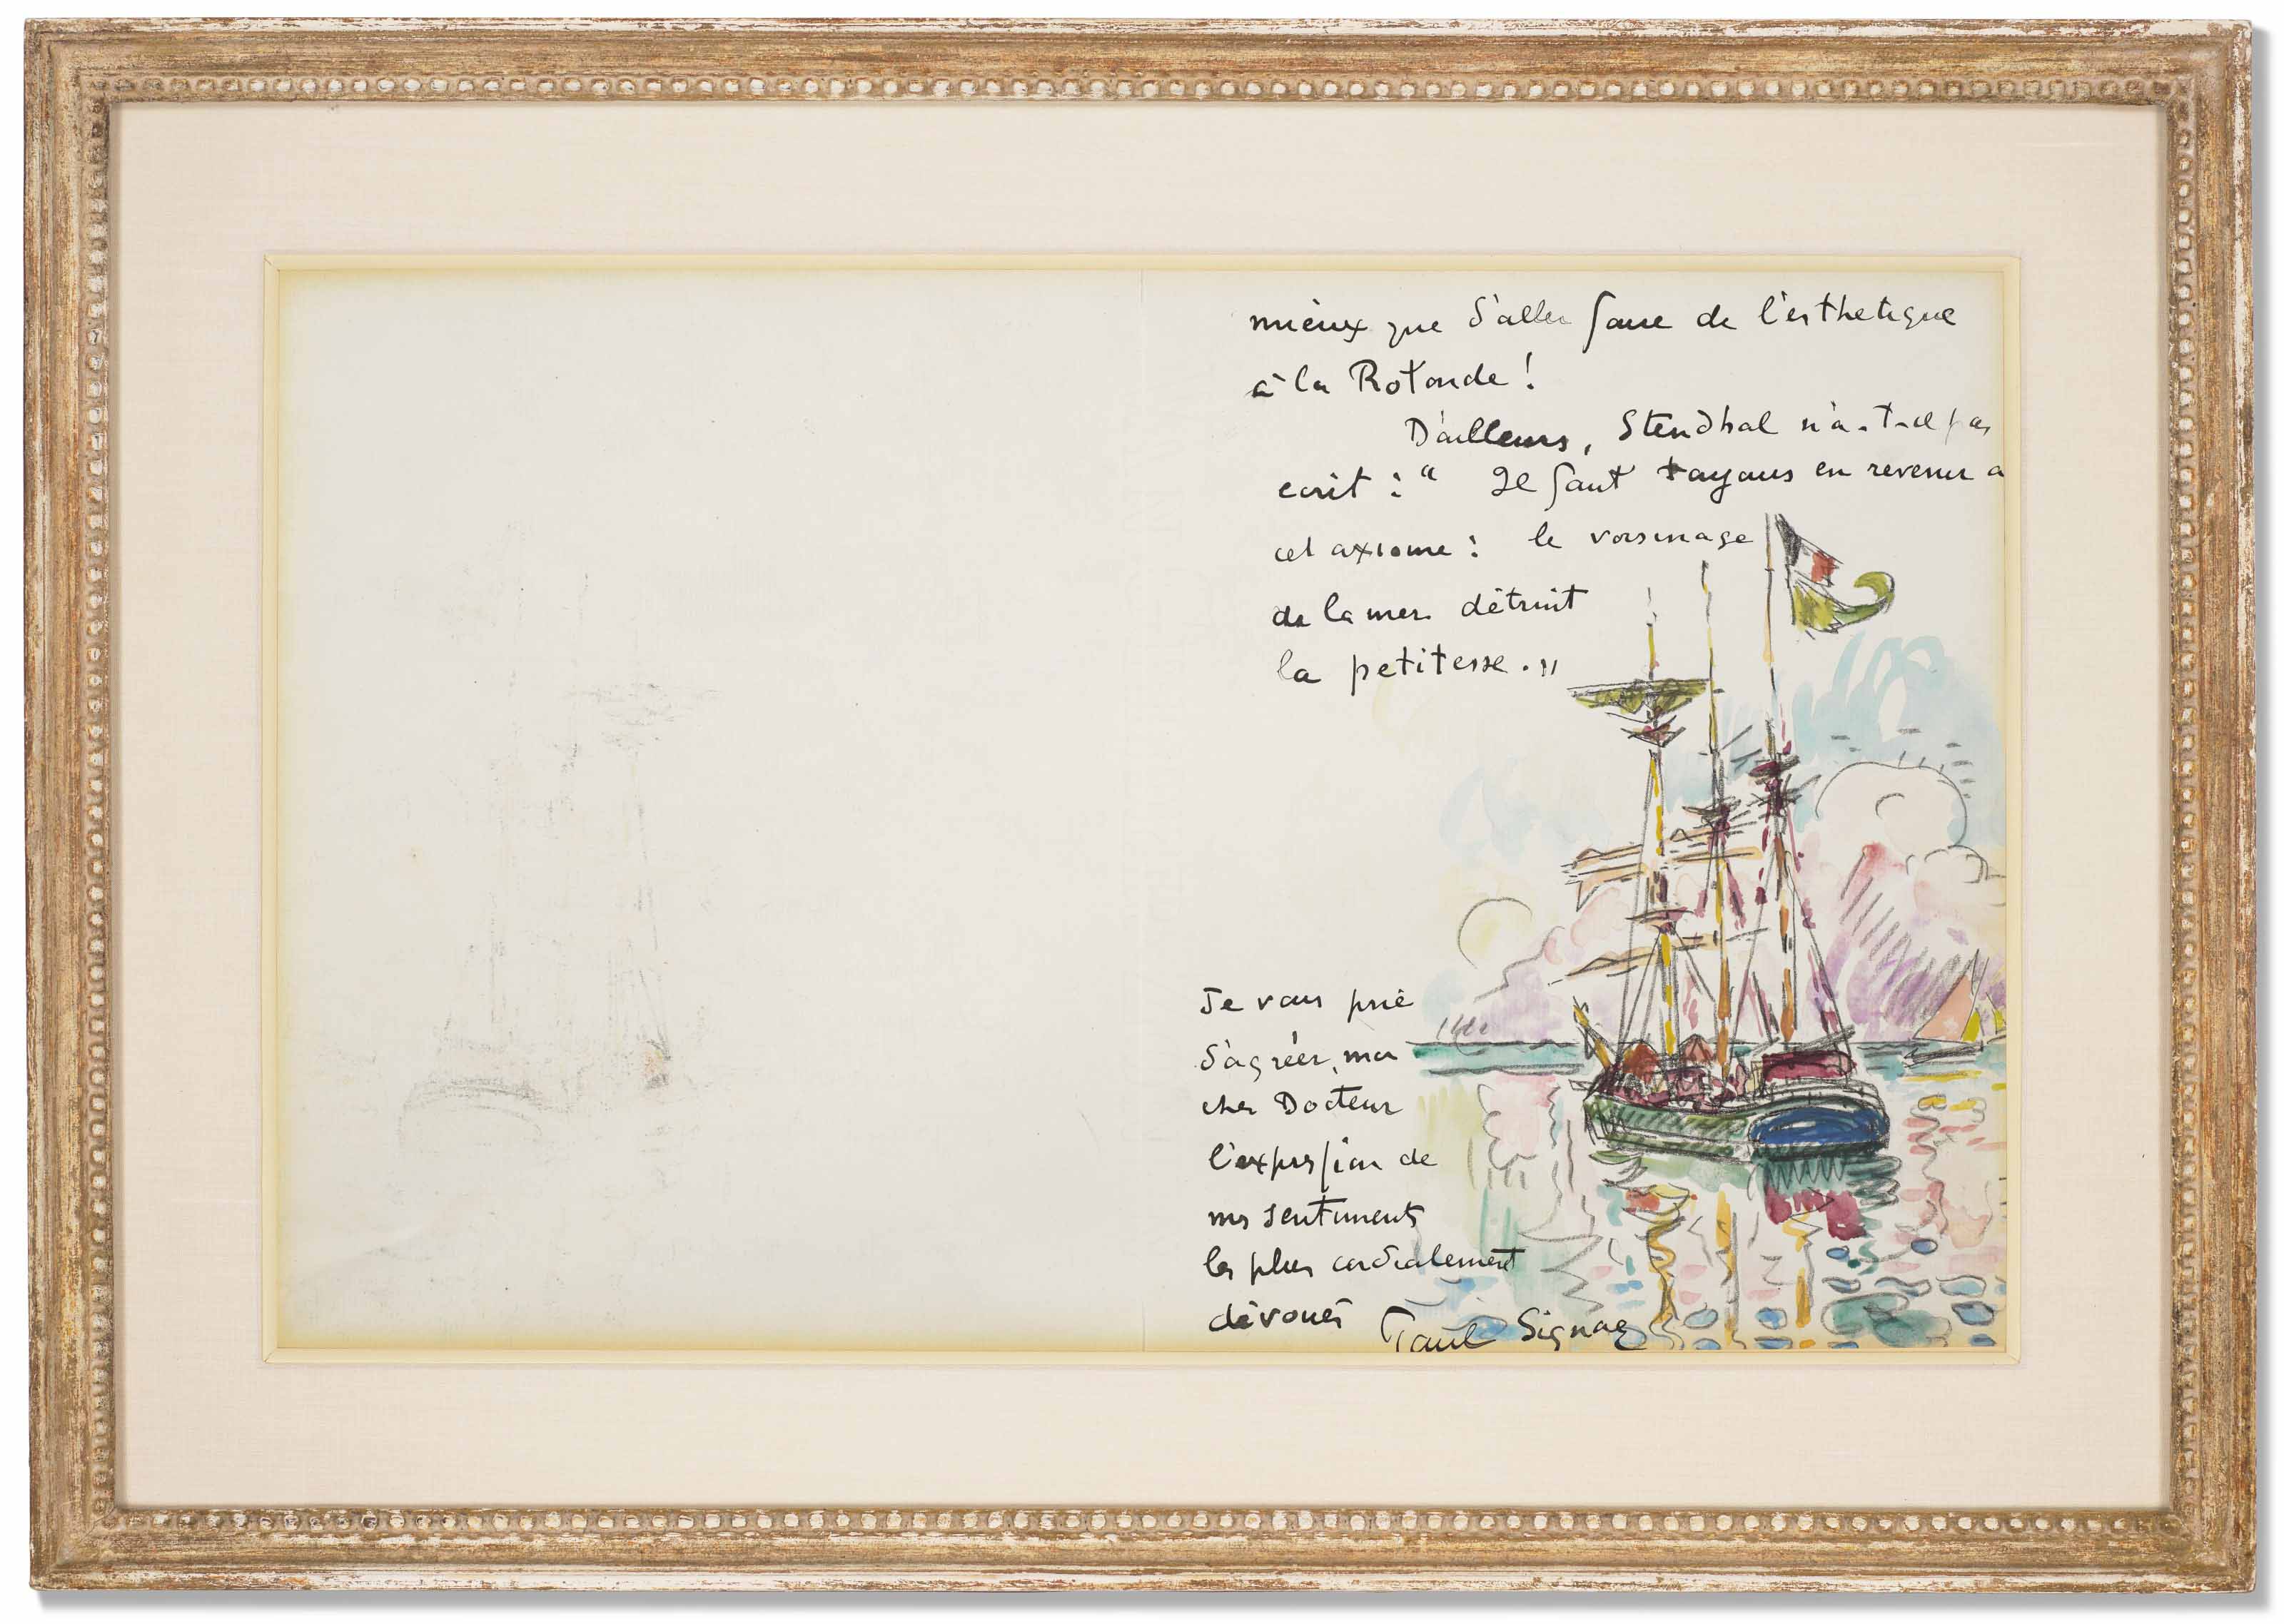 mieux que d'aller faire de l'ésthetique
à la Rotonde !
D'ailleurs, Stendhal n'a-t-il pas
ecrit : " Il faut toujours en revenir a
cet axiome : le voisinage
de la mer détruit
la petitesse. "
Je vous prie
d'agréer, mon
cher Docteur
l'expression de
mes sentiments
les plus cordialement
dévoués Paul Signac